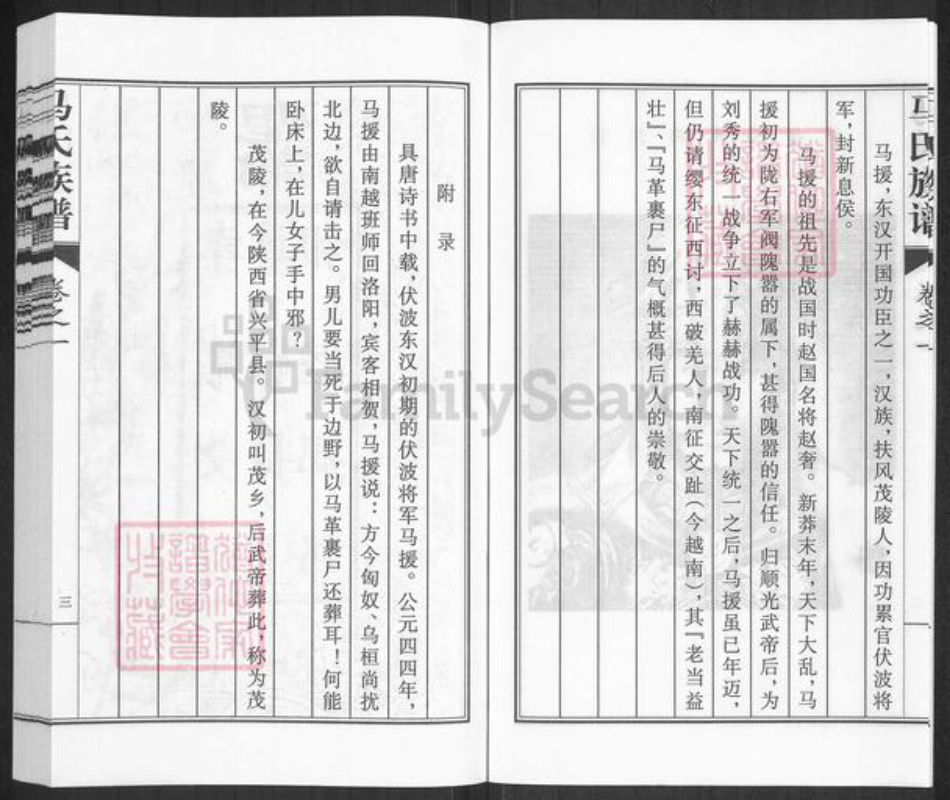 马援，东汉开国功臣之一，汉族，扶风茂陵人，因功累官伏波将
军，封新息侯。
马援的祖先是战国时赵国名将赵奢。新莽末年，天下大乱，马
援初为陇右军阀隗嚣的属下，甚得隗嚣的信任。归顺光武帝后，为
刘秀的统一战争立下了赫赫战功。天下统一之后，马援虽已年迈，
但仍请缨东征西讨，西破羌人，南征交趾（今越南），其『老当益
壮』、『马革裹尸』的气概甚得后人的崇敬。
附录
具唐诗书中载，伏波东汉初期的伏波将军马援。公元四四年，
马援由南越班师回洛阳，宾客相贺，马援说：方今匈奴、乌桓尚扰
北边，欲自请击之。男儿要当死于边野，以马革裹尸还葬耳！何能
卧床上，在儿女子手中邪？
茂陵，在今陕西省兴平县。汉初叫茂乡，后武帝葬此，称为茂
陵。
马氏族谱
卷之一
三
马氏族谱
卷之一
FamilySearch